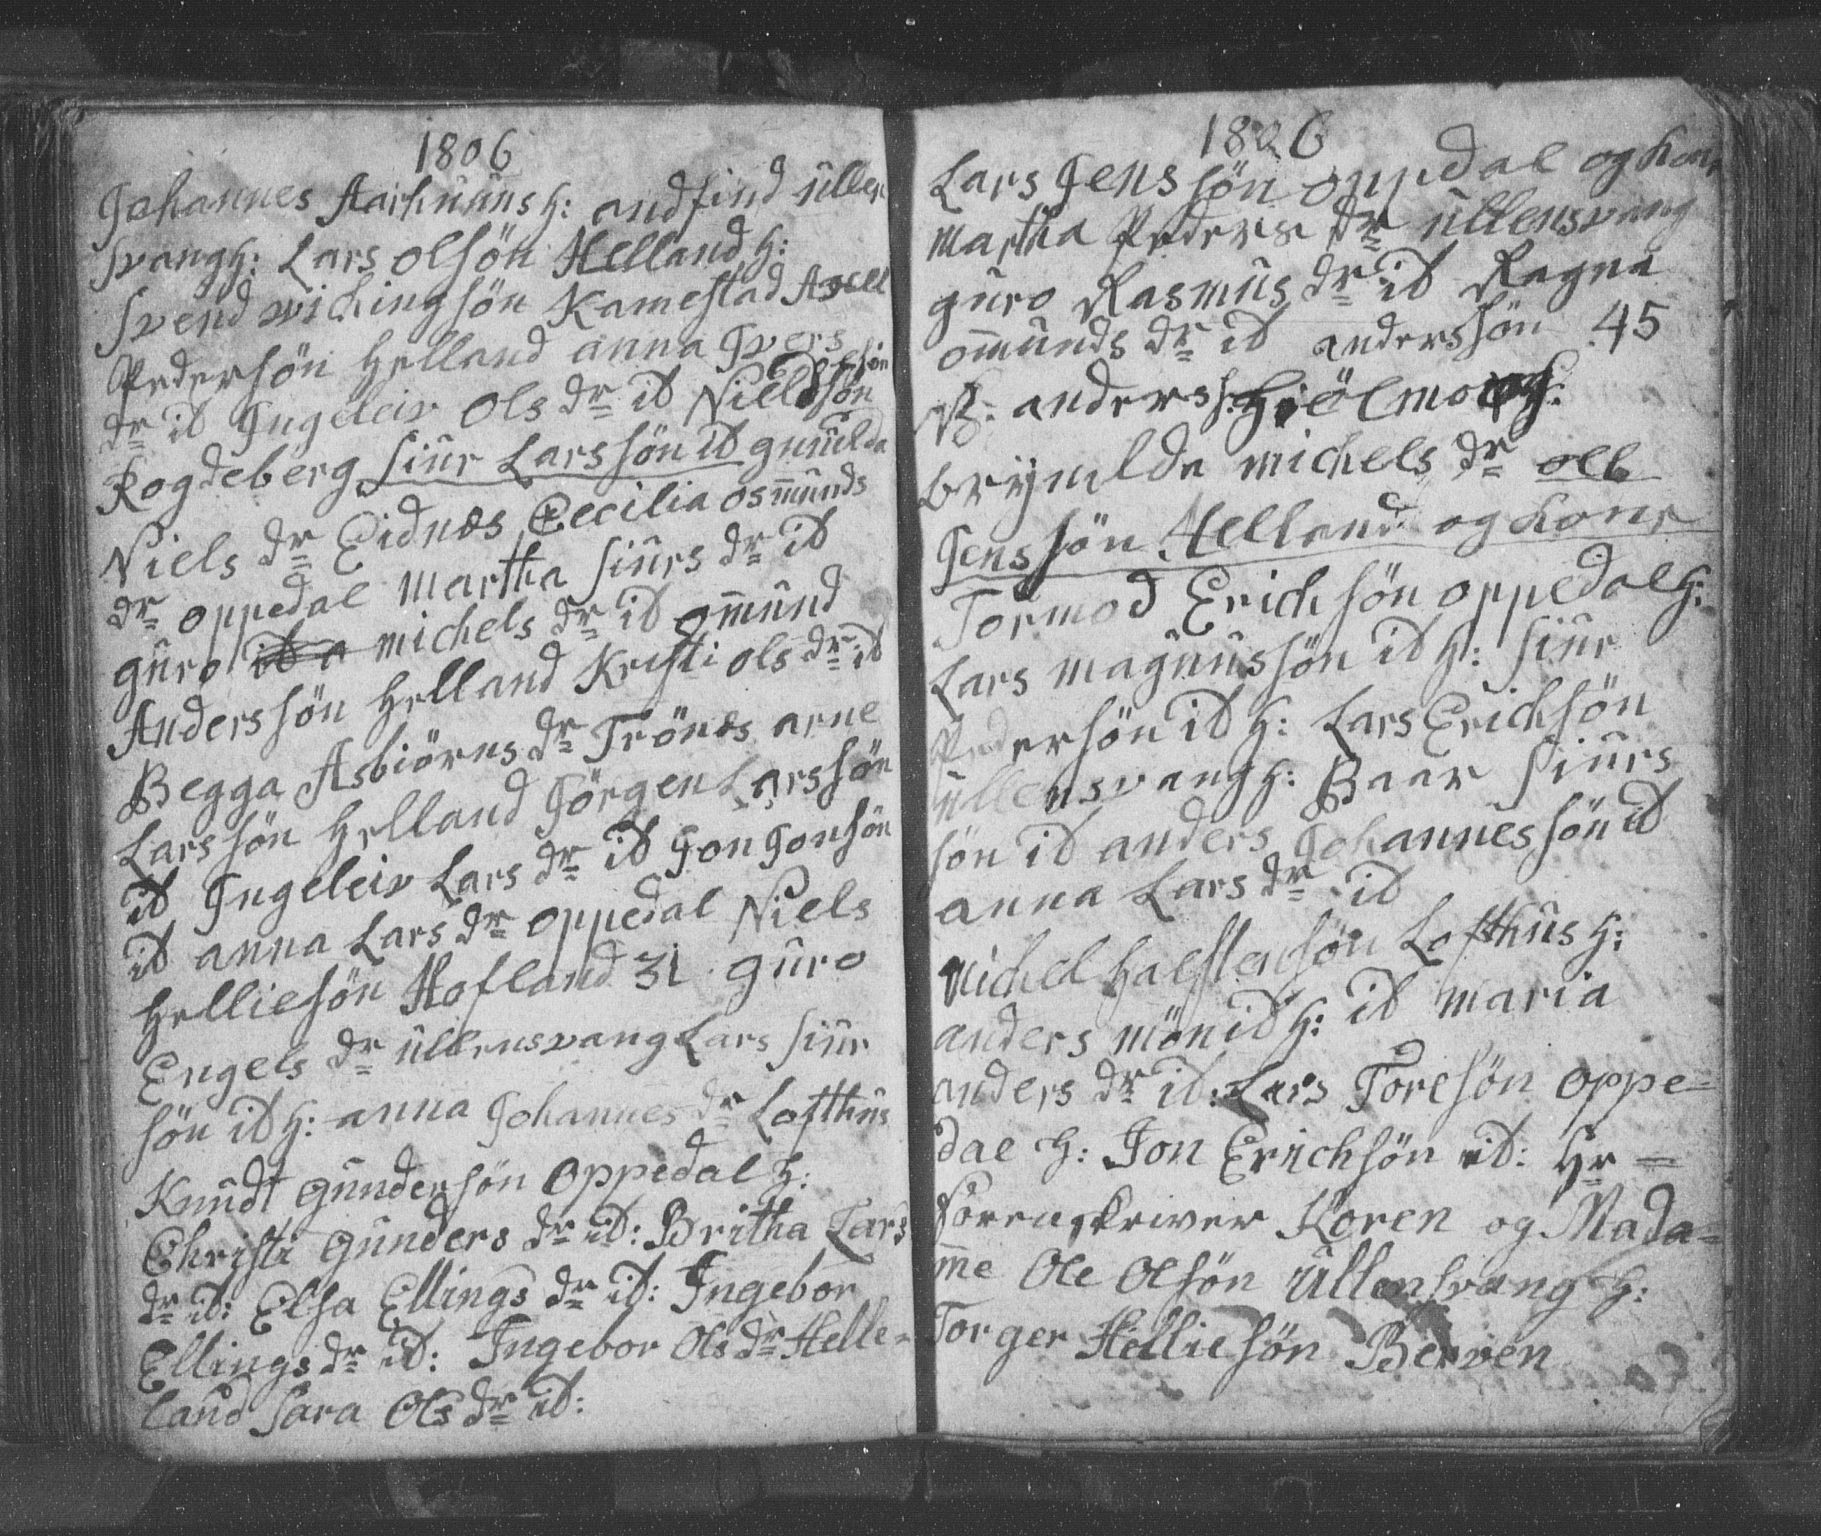 1806
Johannes Aarhuuns h: andfind ullen
svang h: Lars olsön Helland h:
Svend wichingsön Kamestad Axell
Pedersön Helland anna Ivers
dr it Ingeleiv Ols dr it Nieldsön
Rogdeberg siur Larssön it gunilda
Niels dr Eidnæs Cecilia osmunds
dr oppedal Martha siurs dr it
guro michels dr it omund
Anderssön Helland Kristi ols dr it
Begga Asbiörns dr Trönæs arne
Larssön Helland Jörgen Larssön
it Ingeleiv Lars dr it Jon Jonsön
it anna Lars dr oppedal Niels
Helliesön Hofland 31 guro
Engels dr ullensvang Lars siur
sön it h: anna Johannes dr Lofthus
Knudt gundersön oppedal h:
Christi gunders dr it: Britha Lars
dr it: Elsa Ellings dr it: Ingebor
Ellings dr it: Ingebor Ols dr Helle-
land Sara Ols dr it:
1806
Lars Jenssön oppedal og kone
Martha Peders dr ullensvang
guro Rasmus dr it Ragna
omunds dr it anderssön 45
NB: anders s: Hiölmo og h:
brynilda michels dr ole
Jenssön Helland og kone
Tormod Erichsön oppedal h:
Lars magnussön it h: siur
Pedersön it h: Lars Erichsön
ullensvang h: Baar siurs
sön it anders Johannessön it
anna Lars dr it
Michel halstensön Lofthus h:
anders mön it h: it maria
anders dr it: Lars Toresön oppe=
dal h: Jon Erichsön it: Hr =
Sorenskriver Koren og Mada=
me Ole Olsön Ullensvang h:
Torger Helliesön Berven